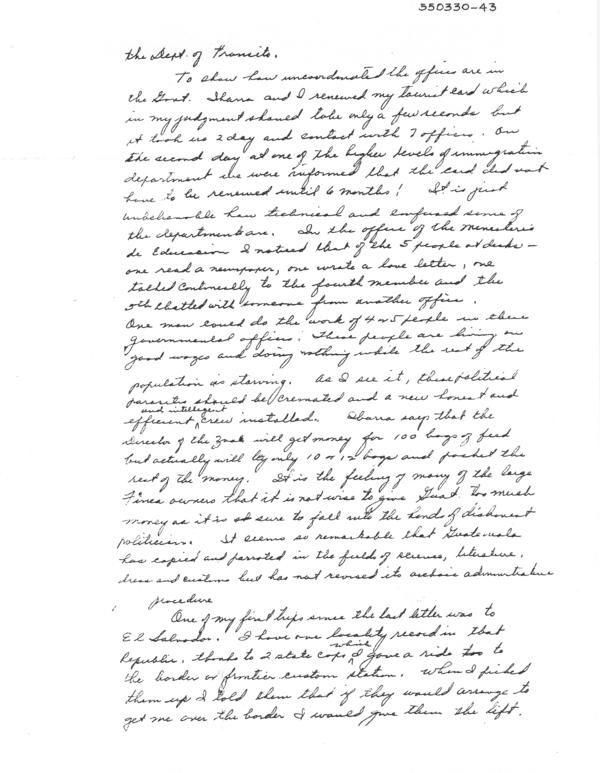 550330-43
the Dept. of Transits.
To show how uncoordinated the offices are in
the Govt. Ibarra and I renewed my tourist card which
in my judgment should take only a few seconds but
it took us 2 day and contact with 7 offices. On
the second day at one of the higher levels of immigration
department we were informed that the card did not
have to be renewed until 6 months! It is just
unbelievable how technical and confused some of
the departments are. In the office of the Ministerio
de Educacion I noticed that of the 5 people at desks –
one read a newspaper, one wrote a love letter, one
talked continually to the fourth member and the
5th chatted with someone from another office.
One man could do the work of 4 or 5 people in these
governmental offices. These people are living on
good wages and doing nothing while the rest of the
population is starving. As I see it, these political
parasites should be cremated and a new honest and
and intelligent
efficient crew installed. Ibarra says that the
Director of the Zoo will get money for 100 bags of feed
but actually will buy only 10 or 12 bags and pocket the
rest of the money. It is the feeling of many of the large
Finca owners that it is not wise to give Guat. too much
money as it is so sure to fall into the hands of dishonest
politicians. It seems so remarkable that Guatemala
has copied and parroted in the fields of science, literature,
dress and customs but has not revised its archaic administrative
procedure
One of my first trips since the last letter was to
El Salvador. I have one locality record in that
which
Republic, thanks to 2 state cops I gave a ride too to
the border or frontier custom station. When I picked
them up I told them that if they would arrange to
get me over the border I would give them the lift.